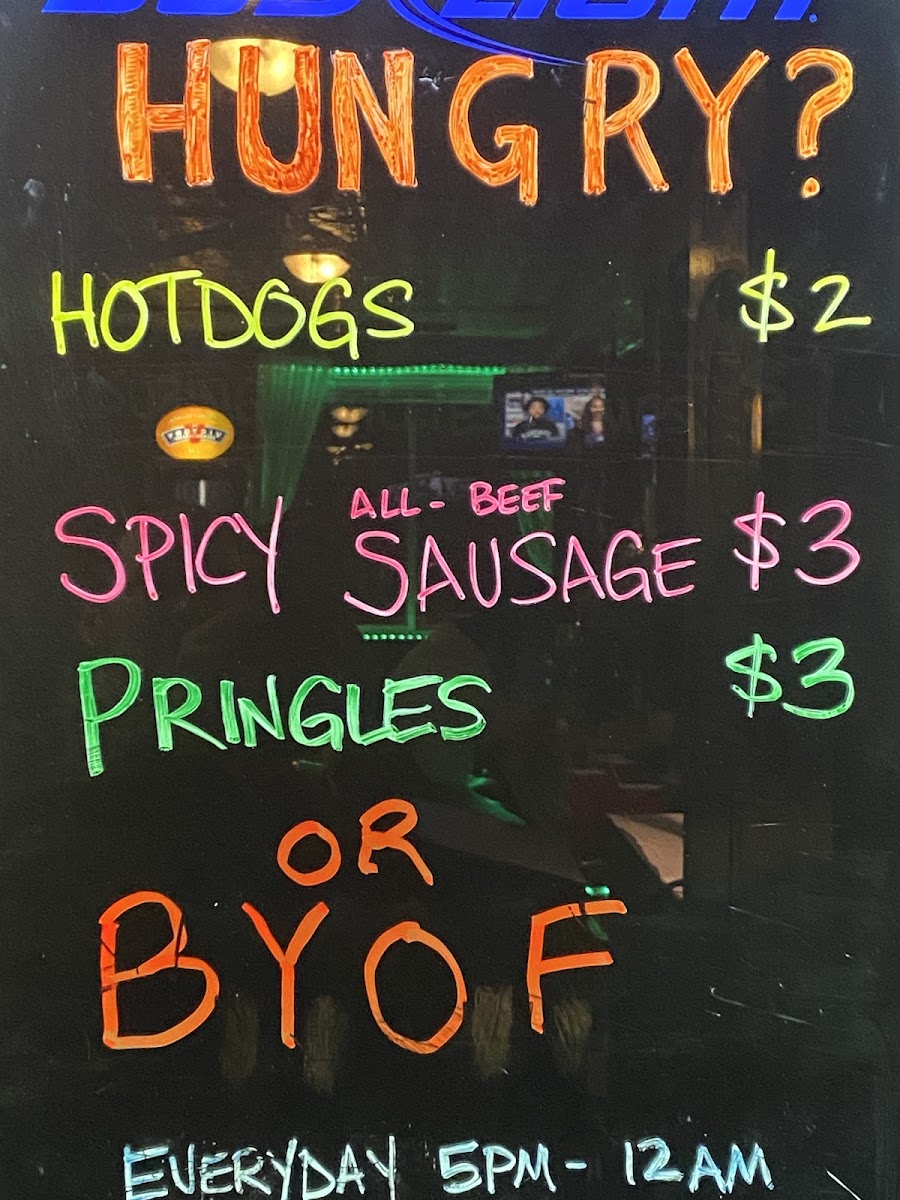 BUD LIGHT
HUNGRY?
HOTDOGS $2
ALL-BEEF
SPICY SAUSAGE $3
PRINGLES $3
OR
BYOF
EVERYDAY 5PM-12AM